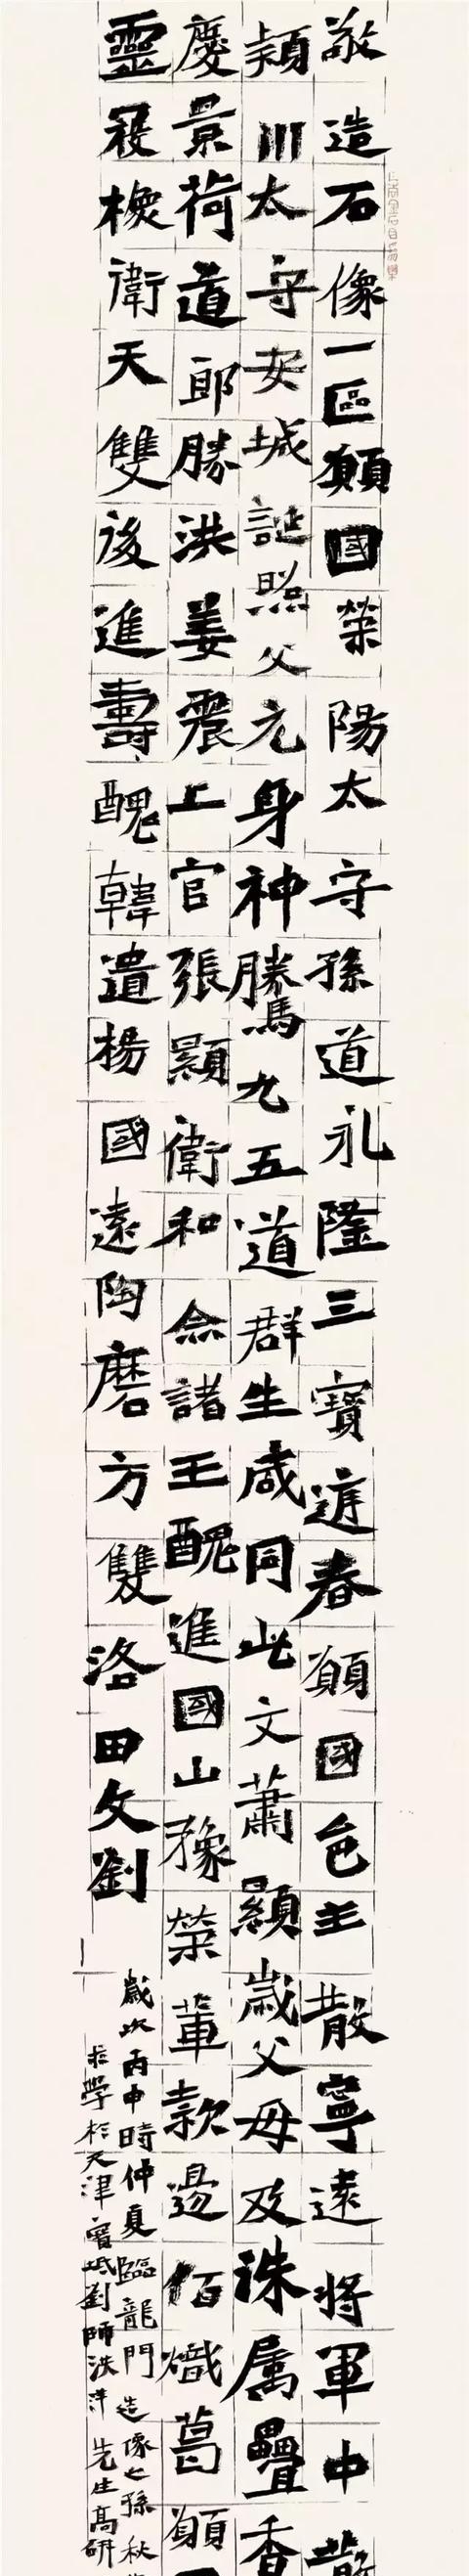 敬造石像一區願國榮陽太守孫道永隆三寶遊春願國邑主散寧遠將軍中散
潁川太守安城誕照父元身神騰九五道群生咸同此文蕭顯歲父母及誅属疊香
慶景荷道郎勝洪姜震上官張顯衛和念諸王醜進國山豫榮董款邊佰熾葛願
靈祋橑衛天雙後進壽醜韓遺楊國遠陶磨方雙洛田文劉
歲次丙申時仲夏臨龍門造像之孫秋
求學於天津劉師洪洋先生高研